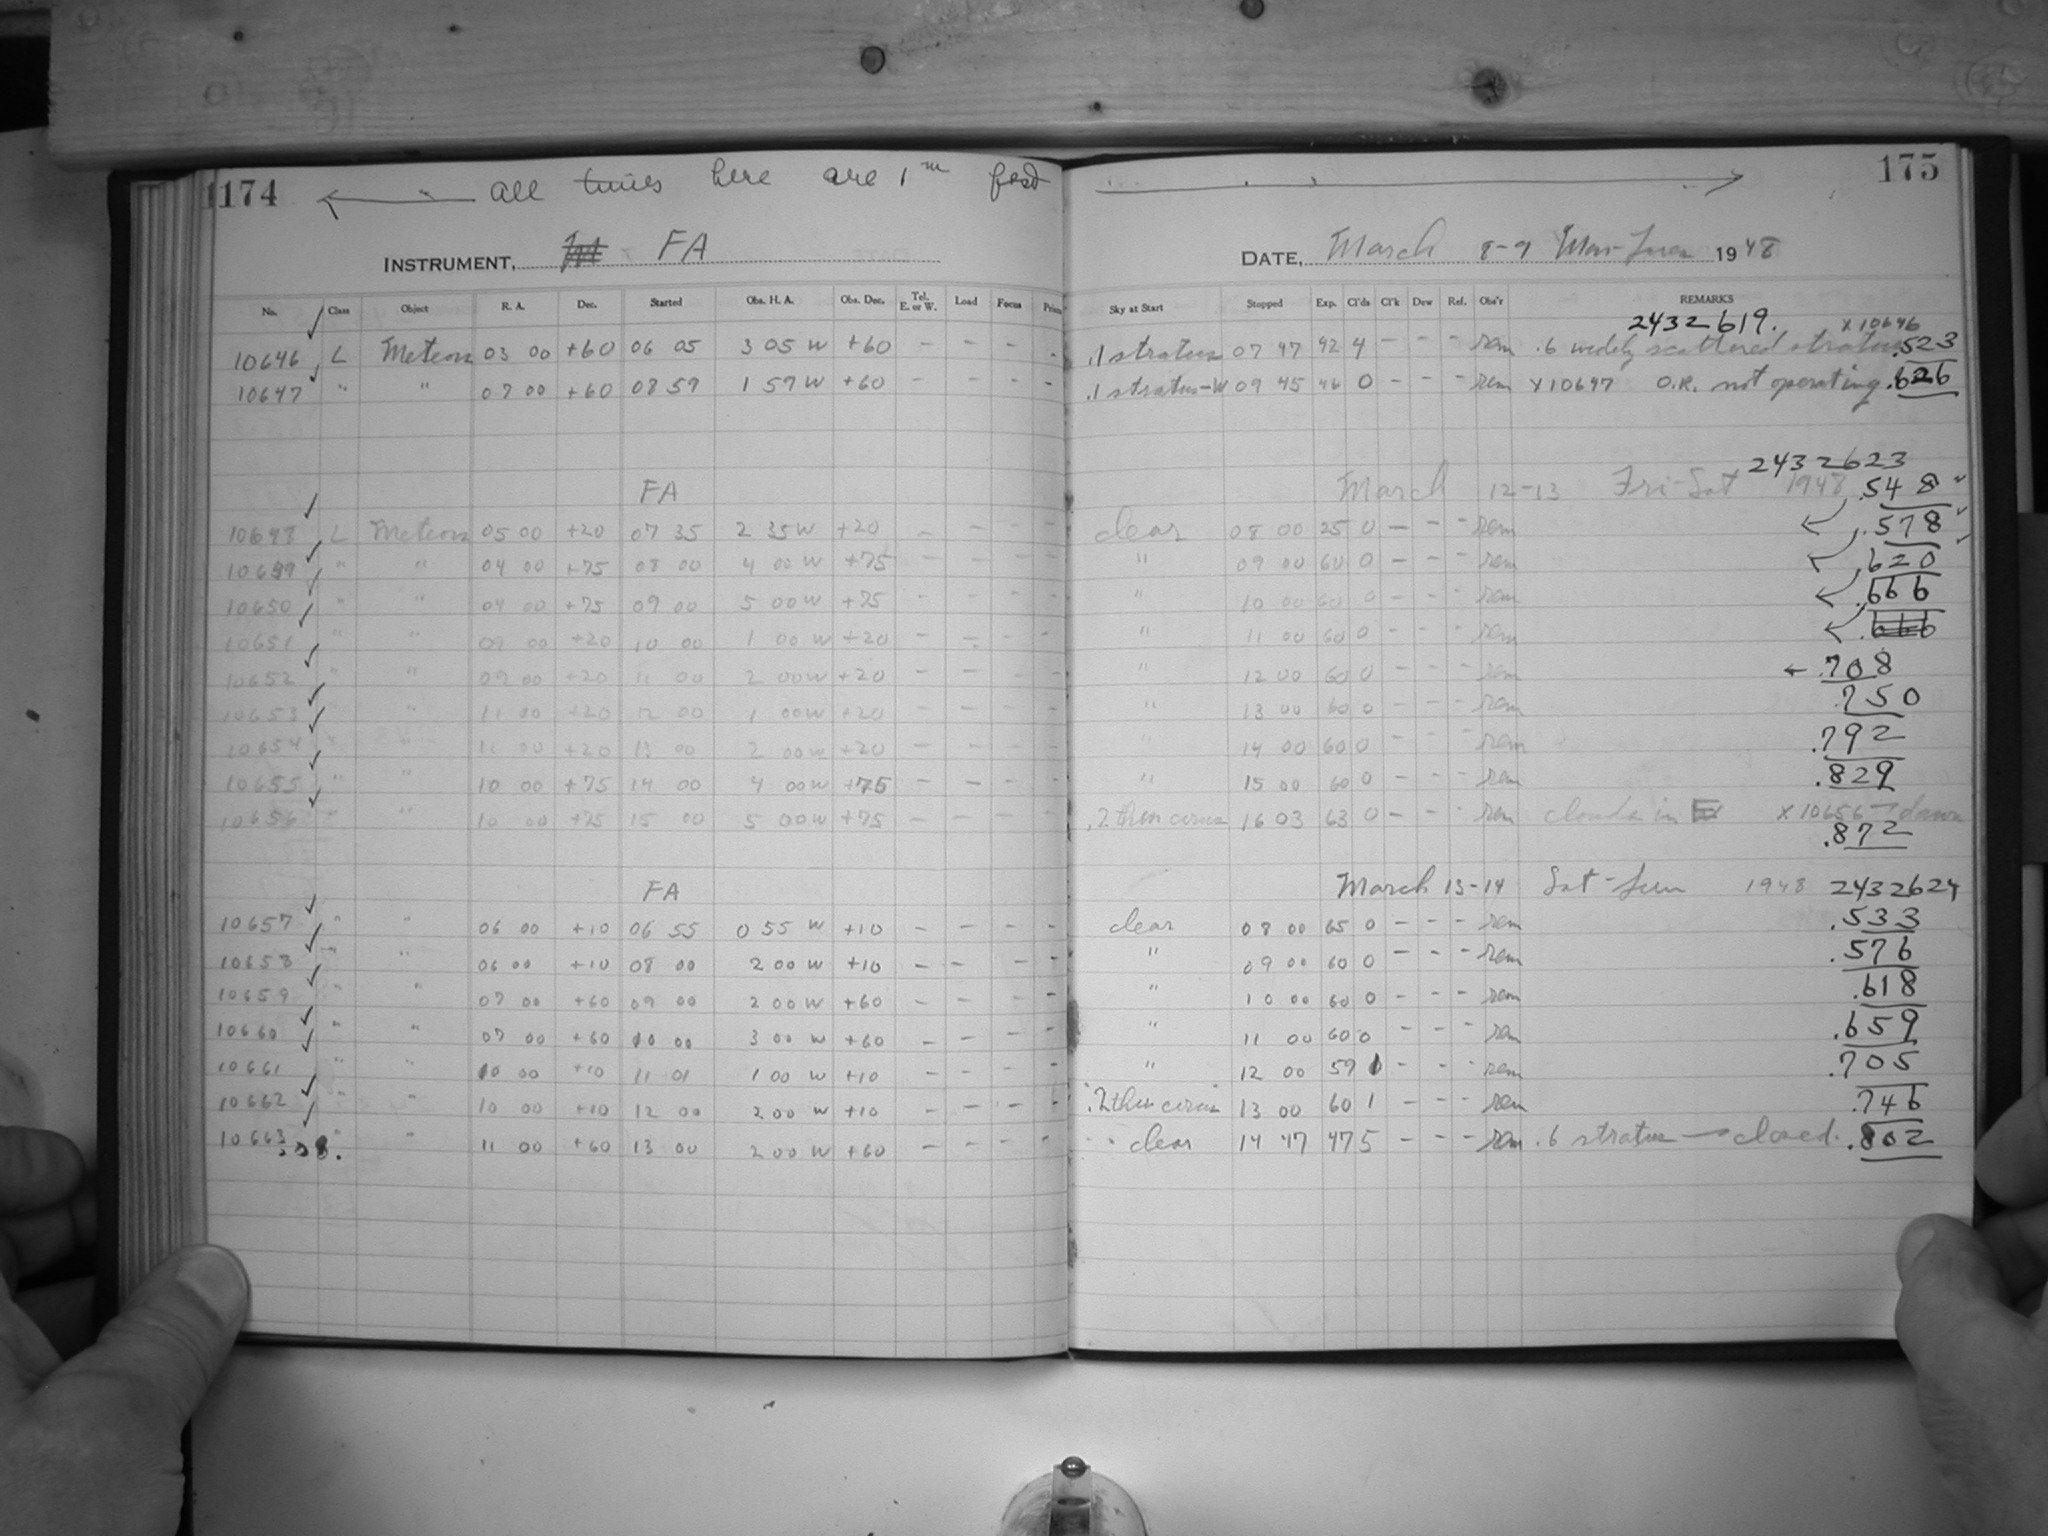 174 ← All times here are 1ᵐ fast → 175
INSTRUMENT, FA DATE, March 8-9 Mon-Tues 1948
No. Class Object R. A. Dec. Started Obs. H. A. Obs. Dec. Tel. E. or W. Load Focus Sky at Start Stopped Exp. Cl'ds Cl'k Dew Ref. Obs'r REMARKS
2432619. x10646
10646 L Meteors 03 00 +60 06 05 3 05 W +60 - - - - .1 stratus 07 47 42 4 - - - rem .6 widely scattered stratus .523
10647 " " 07 00 +60 08 59 1 57 W +60 - - - - .1 stratus-W 09 45 46 0 - - - rem x10647 O.R. not operating .626
2432623
FA March 12-13 Fri-Sat 1948 .548
10648 L Meteors 05 00 +20 07 35 2 35 W +20 - - - - clear 08 00 25 0 - - - rem .578
10649 " " 04 00 +75 08 00 4 00 W +75 - - - - " 09 00 60 0 - - - rem .620
10650 " " 04 00 +75 09 00 5 00 W +75 - - - - " 10 00 60 0 - - - rem .666
10651 " " 09 00 +20 10 00 1 00 W +20 - - - - " 11 00 60 0 - - - rem .666
10652 " " 09 00 +20 11 00 2 00 W +20 - - - - " 12 00 60 0 - - - rem ← .708
10653 " " 11 00 +20 12 00 1 00 W +20 - - - - " 13 00 60 0 - - - rem .750
10654 " " 11 00 +20 13 00 2 00 W +20 - - - - " 14 00 60 0 - - - rem .792
10655 " " 10 00 +75 14 00 4 00 W +75 - - - - " 15 00 60 0 - - - rem .829
10656 " " 10 00 +75 15 00 5 00 W +75 - - - - .2 thin cirrus 16 03 63 0 - - - rem clouds in E x10656 → dawn
.872
FA March 13-14 Sat-Sun 1948 2432624
10657 " " 06 00 +10 06 55 0 55 W +10 - - - - clear 08 00 65 0 - - - rem .533
10658 " " 06 00 +10 08 00 2 00 W +10 - - - - " 09 00 60 0 - - - rem .576
10659 " " 07 00 +60 09 00 2 00 W +60 - - - - " 10 00 60 0 - - - rem .618
10660 " " 07 00 +60 10 00 3 00 W +60 - - - - " 11 00 60 0 - - - rem .659
10661 " " 10 00 +10 11 01 1 00 W +10 - - - - " 12 00 59 1 - - - rem .705
10662 " " 10 00 +10 12 00 2 00 W +10 - - - - .2 thin cirrus 13 00 60 1 - - - rem .746
10663 " " 11 00 +60 13 00 2 00 W +60 - - - - clear 14 47 47 5 - - - rem .6 stratus → closed. .802